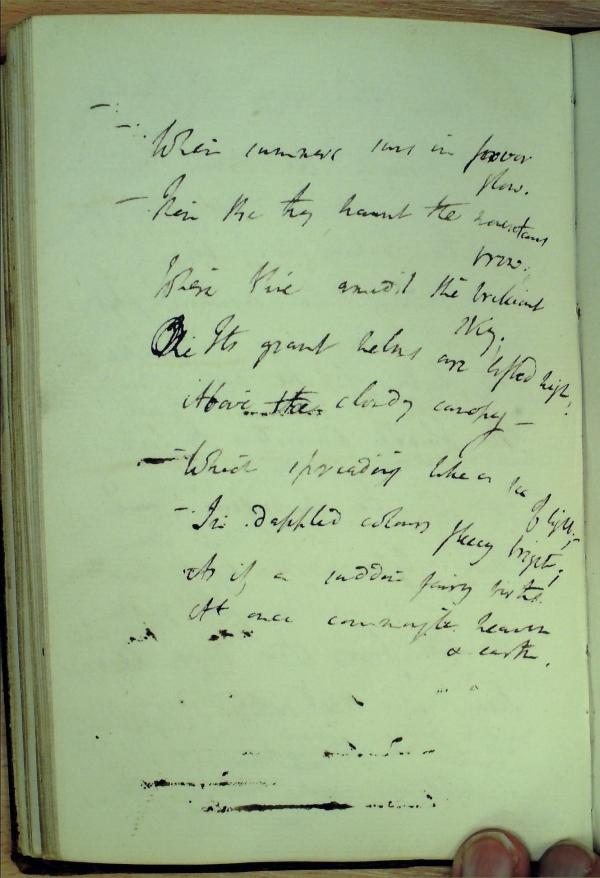 When summers suns in power
flow.
the they haunt the mountains
brow,
Where amidst the brilliant
sky,
Its giant helms are lifted high,
Above the cloudy canopy –
Which spreading like a sea
of light,
In dappled colours fleecy bright;
As if a sudden fairy birth
At once commingle heaven
& earth.